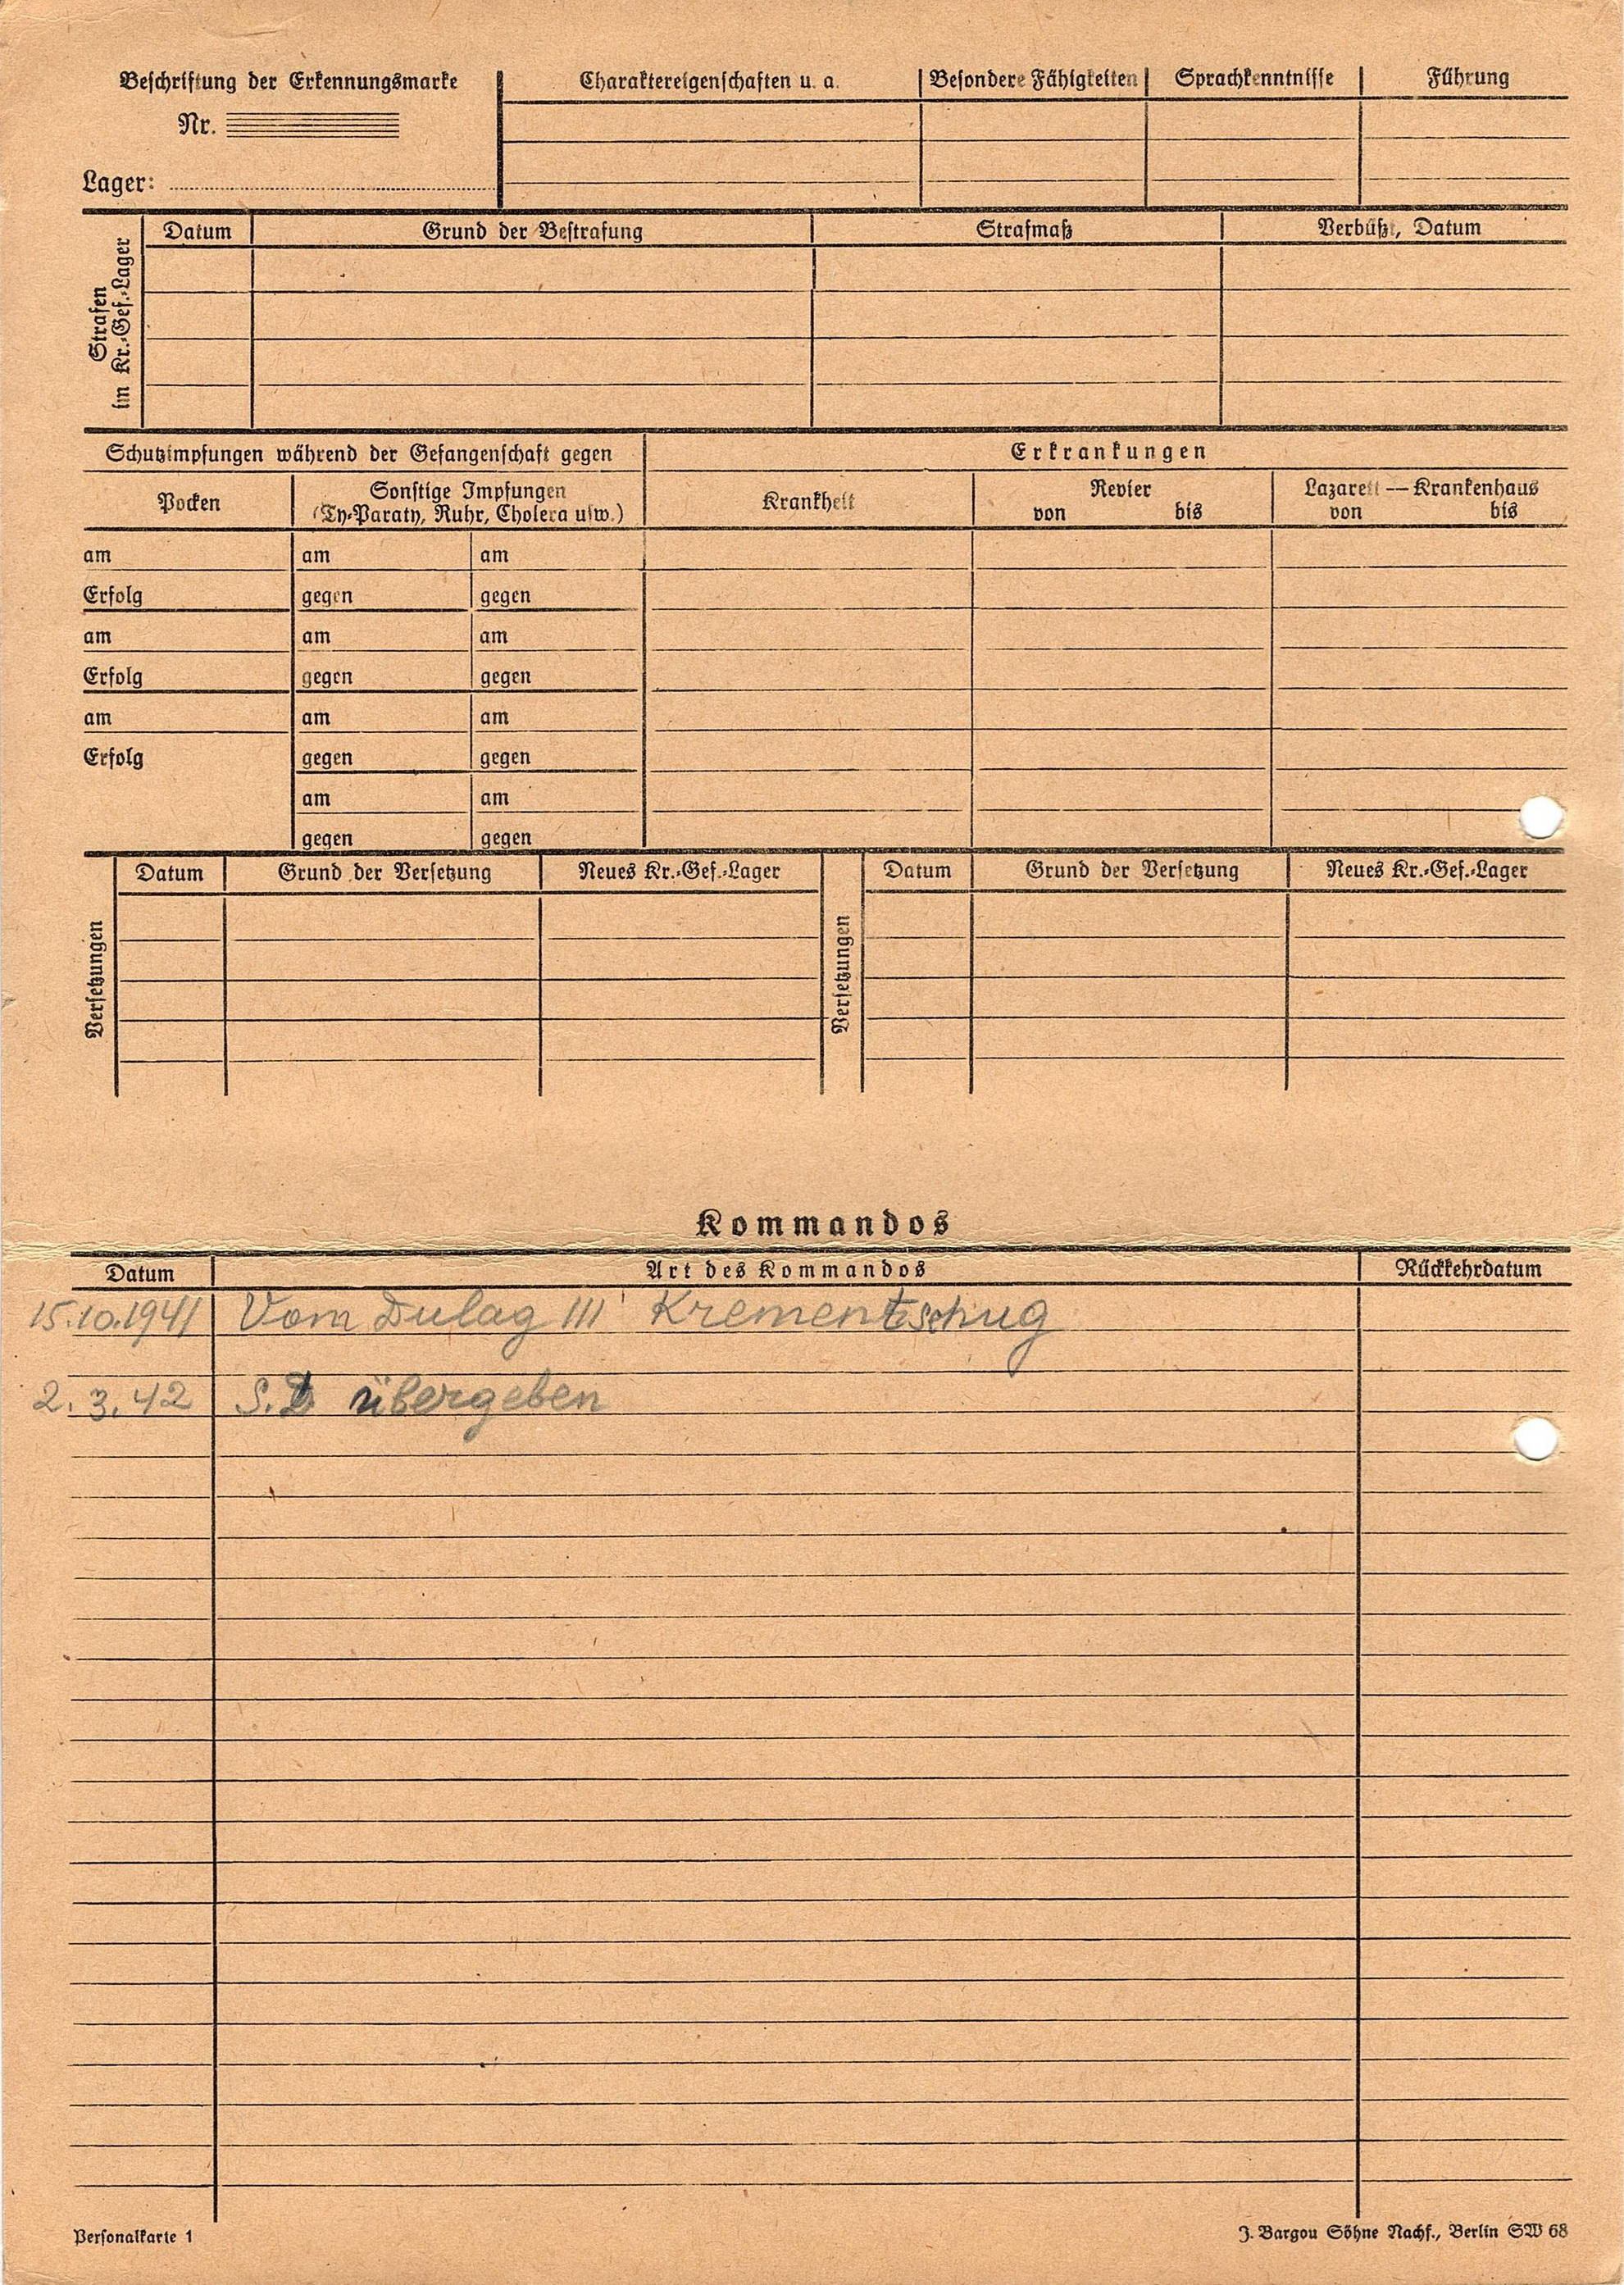 Beschriftung der Erkennungsmarke
Nr.
Lager:
Charaktereigenschaften u. a. Besondere Fähigkeiten Sprachkenntnisse Führung
Strafen
im Kr.-Gef.-Lager
Datum Grund der Bestrafung Strafmaß Verbüßt, Datum
Schutzimpfungen während der Gefangenschaft gegen
Pocken Sonstige Impfungen
(Ty-Paraty, Ruhr, Cholera usw.)
am am am
Erfolg gegen gegen
am am am
Erfolg gegen gegen
am am am
Erfolg gegen gegen
am am
gegen gegen
Erkrankungen
Krankheit Revier Lazarett — Krankenhaus
von bis von bis
Versetzungen
Datum Grund der Versetzung Neues Kr.-Gef.-Lager
Versetzungen
Datum Grund der Versetzung Neues Kr.-Gef.-Lager
Kommandos
Datum Art des Kommandos Rückkehrdatum
15.10.1941 Vom Dulag 111 Krementschug
2.3.42 S.D übergeben
Personalkarte 1
J. Bargou Söhne Nachf., Berlin SW 68